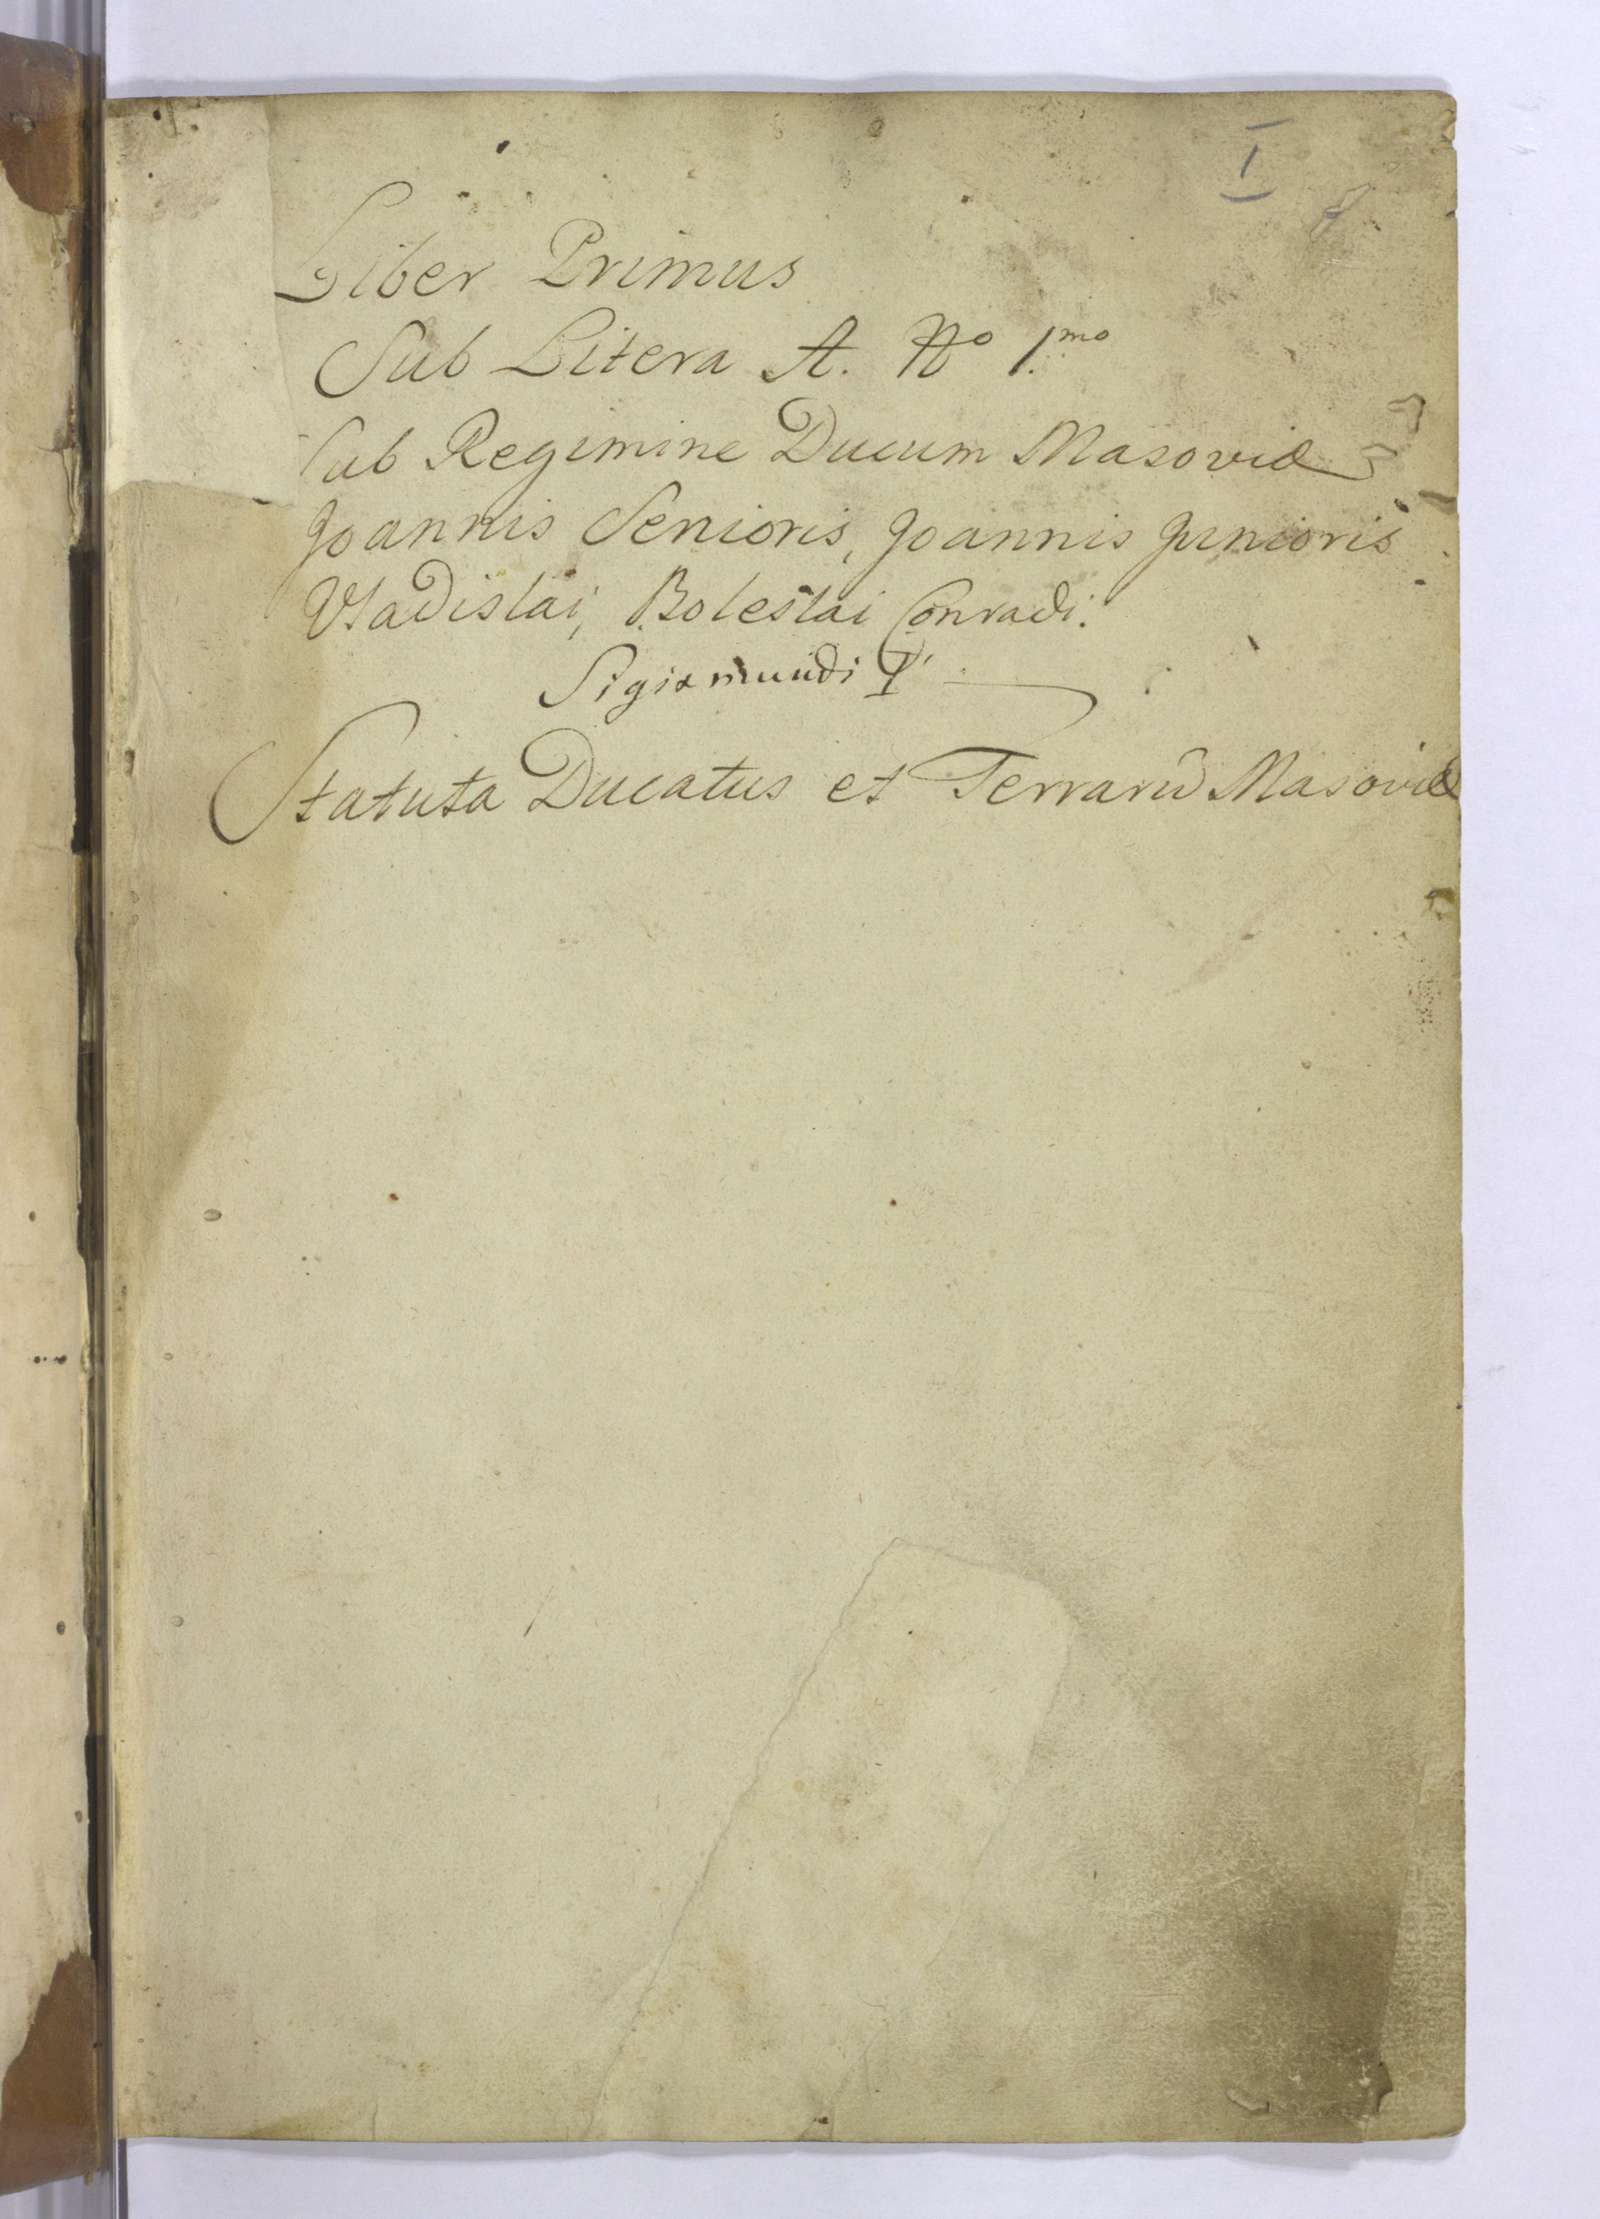 I
Liber Primus
Sub Litera A. No 1.mo
Sub Regimine Ducum Masoviæ
Joannis Senioris, Joannis Junioris
Vladislai, Boleslai Conradi.
Sigismundi I
Statuta Ducatus et Terrarū Masoviæ